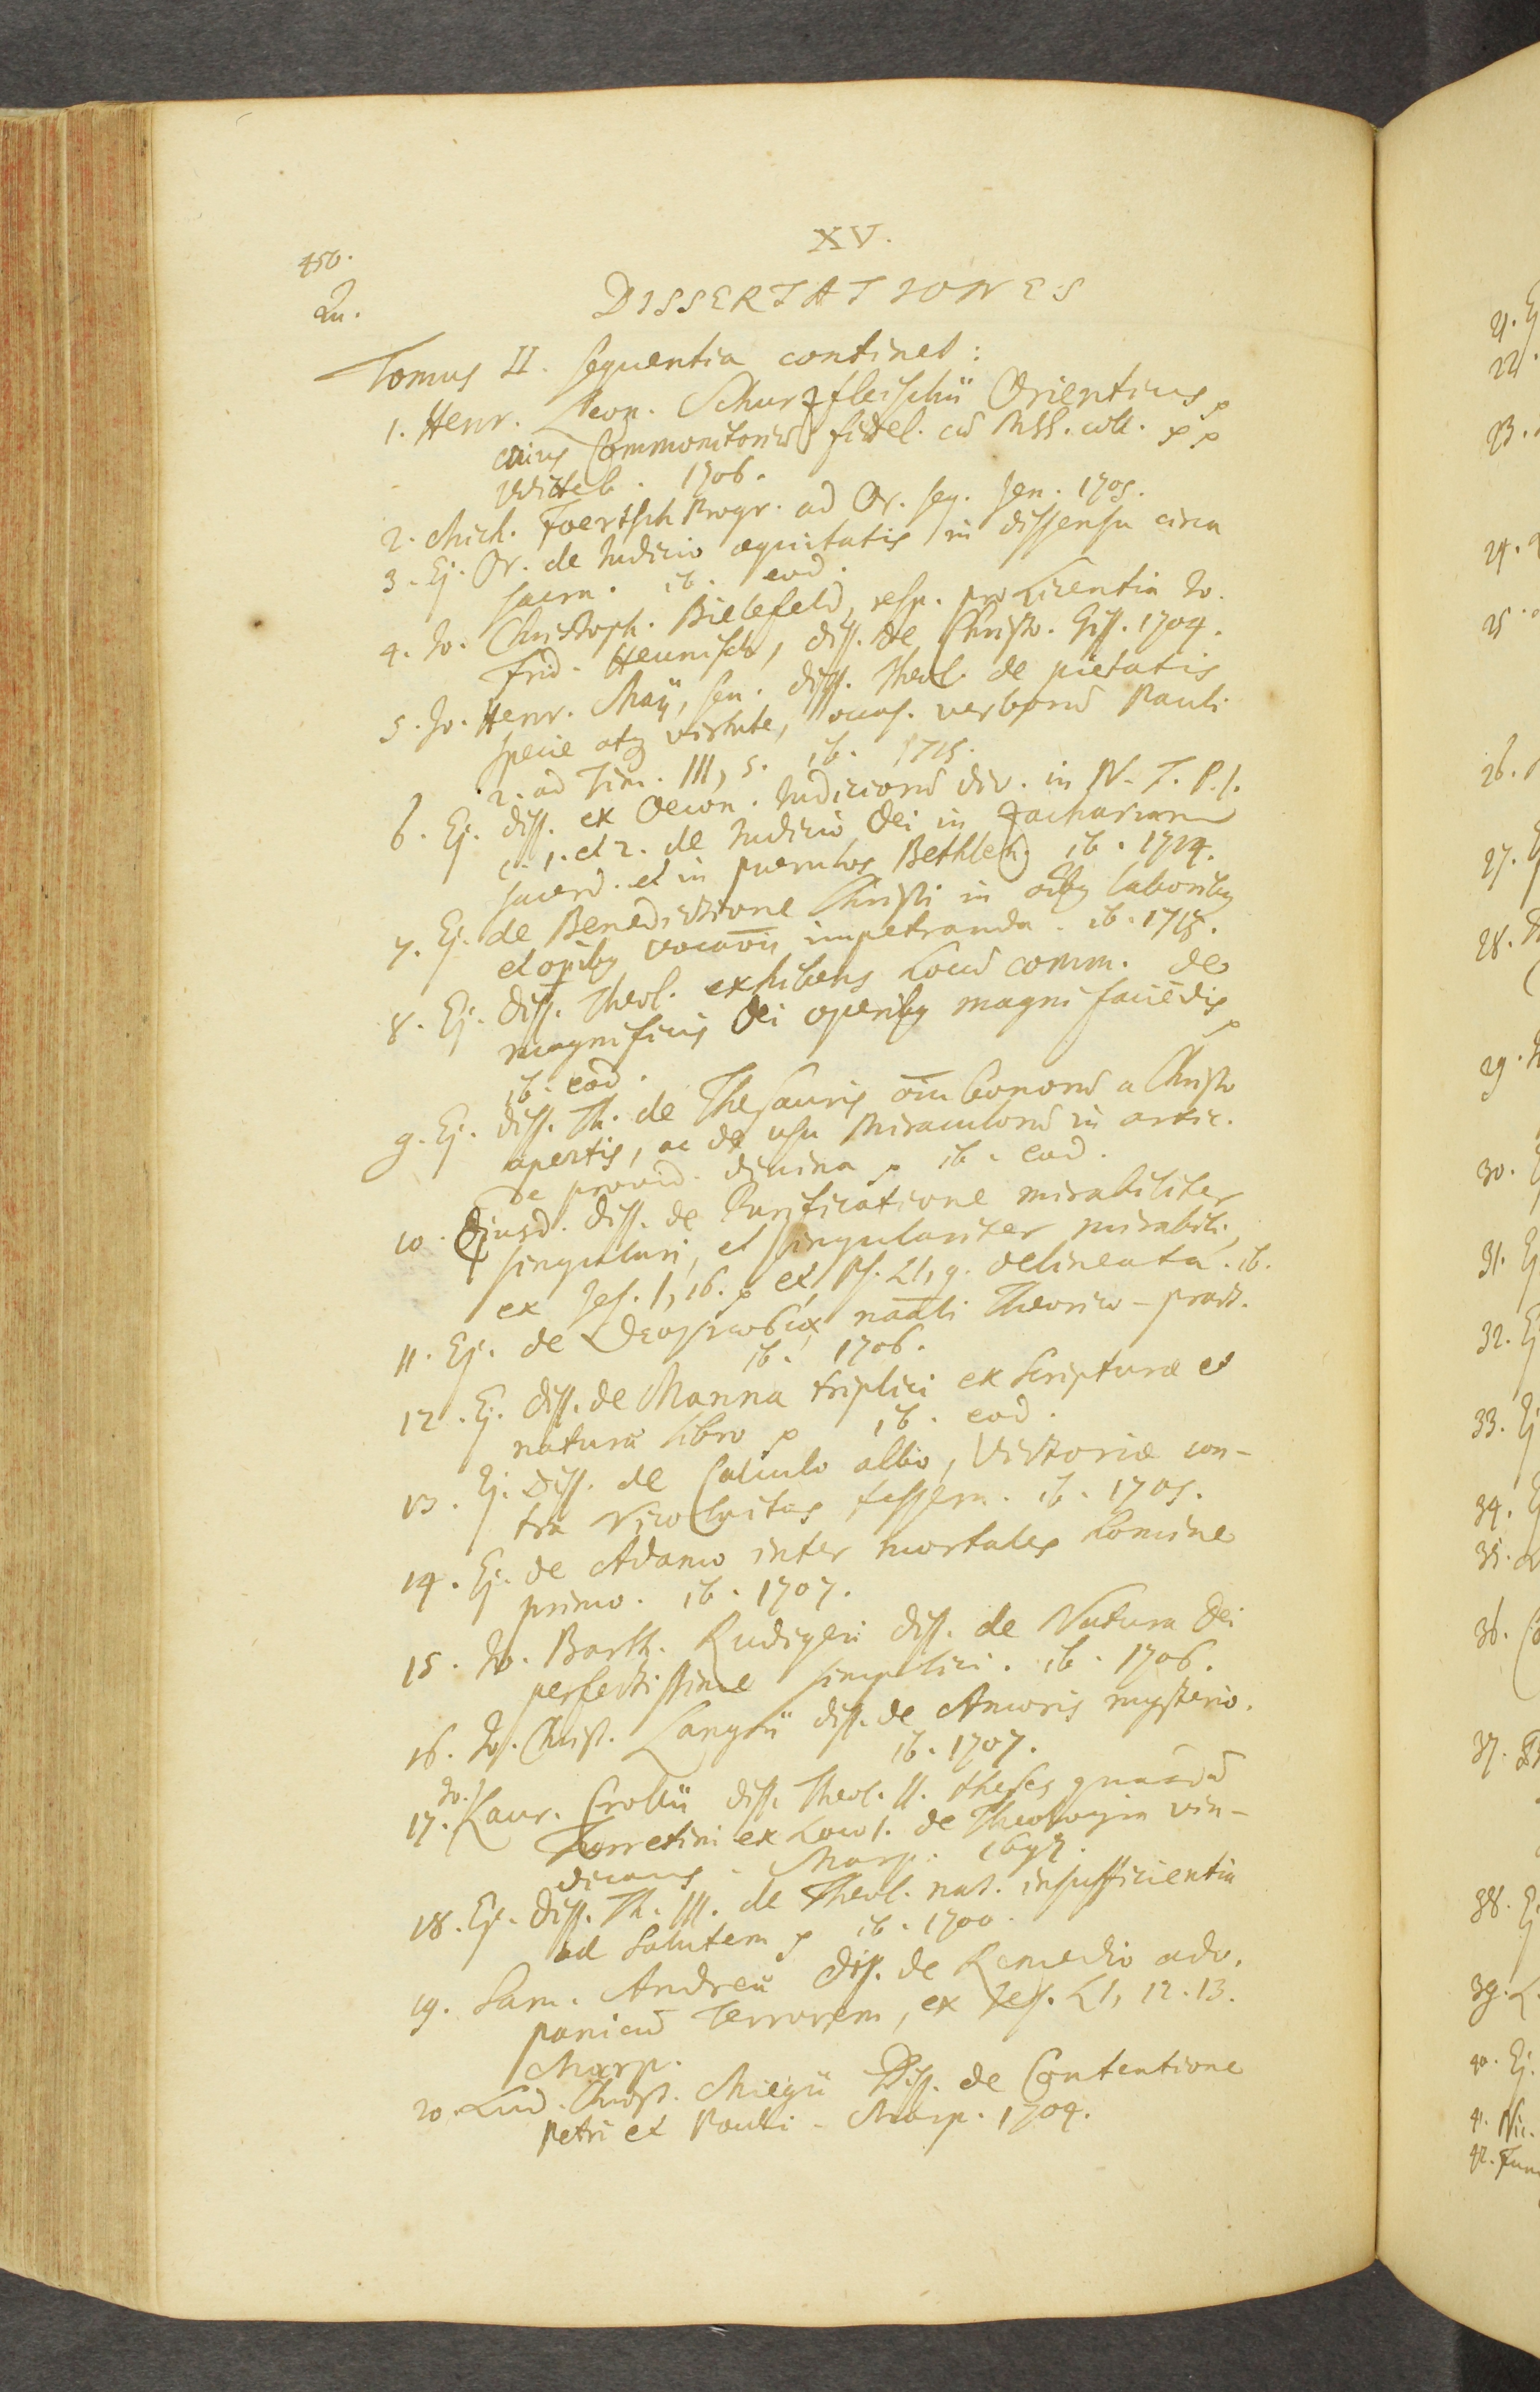 XV.
450.
Qu.
DISSERTATIONES
Tomus II. sequentia continet:
1. Henr. Leon. Schurzfleischii Orienticus
cuius Commonitoriū fidel. cū MSS. coll.
Witteb. 1706.
2. Mich. Foertsch Progr. ad Or. seq. Jen. 1705.
3. Ej. Or. de Judicio aequitatis in dissensu circa
sacra. ib. eod.
4. Jo. Christoph. Bielefeld, resp. pro Licentia Jo.
Frid. Heunisch, diss. de Christo. Giss. 1704.
5. Jo. Henr. Maÿ, sen. diss. Theol. de pietatis
specie atq virtute, occas. verborū Pauli
2. ad Tim. III, 5. ib. 1715.
6. Ej. diss. ex Oecon. Judiciorū div. in N. T. P. I.
c. 1. et 2. de Judicio Dei in Zachariam
sacerd. et in puerulos Bethleh. ib. 1714.
7. Ej. de Benedictione Christi in oībq laboribq
et opibq vocaōīs impetranda. ib. 1718.
8. Ej. Diss. Theol. exhibens Locū comm. de
magnificis Dei operibq magni faciēdis
ib. eod.
9. Ej. diss. Th. de Thesauris oīm bonorū a Christo
apertis, ac de usu Miraculorū in artic.
de provid. divina ib. eod.
10. Ejusd. diss. de Purificatione mirabiliter
singulari, et singulariter mirabili,
ex Jes. I, 16. et Ps. LI, 9. delineata. ib.
11. Ej. de Θεογνωσίᾳ naāli Theorico-pract.
ib. 1706.
12. Ej. diss. de Manna triplici ex Scripturae et
naturae libro ib. eod.
13. Ej. Diss. de Calculo albo, Victoriae con-
tra Nicolaitas tessera. ib. 1705.
14. Ej. de Adamo inter mortales homine
primo. ib. 1707.
15. Jo. Barth. Rudigeri diss. de Natura Dei
perfectissime simplici. ib. 1706.
16. Jo. Christ. Langii diss. de Amoris mysterio.
ib. 1707.
17. Jo. Laur. Crollii diss. Theol. II. theses quasdā
Turretini ex Loco I. de Theologia vin-
dicans. Marp. 1692.
18. Ej. Diss. Th. III. de Theol. nat. insufficientia
ad Salutem ib. 1700.
19. Sam. Andreae Diss. de Remedio adv.
panicū Terrorem, ex Jes. LI, 12. 13.
Marp.
20. Lud. Christ. Miegii Diss. de Contentione
Petri et Pauli. Marp. 1704.
21. Ej
22.
23.
24.
25.
26.
27.
28.
29.
30.
31. Ej
32. Ej
33. Ej
34.
35.
36.
37.
38. Ej
39. L.
40. Ej.
41. Nic.
42. Fun